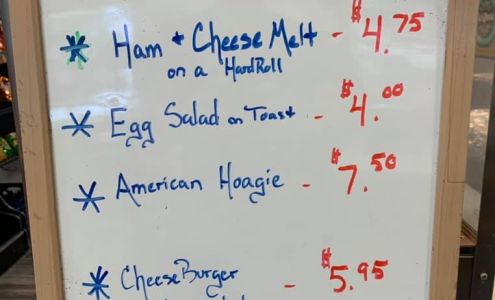 * Ham + Cheese Melt - $4.75
on a Hard Roll
* Egg Salad on Toast - $4.00
* American Hoagie - $7.50
* CheeseBurger - $5.95